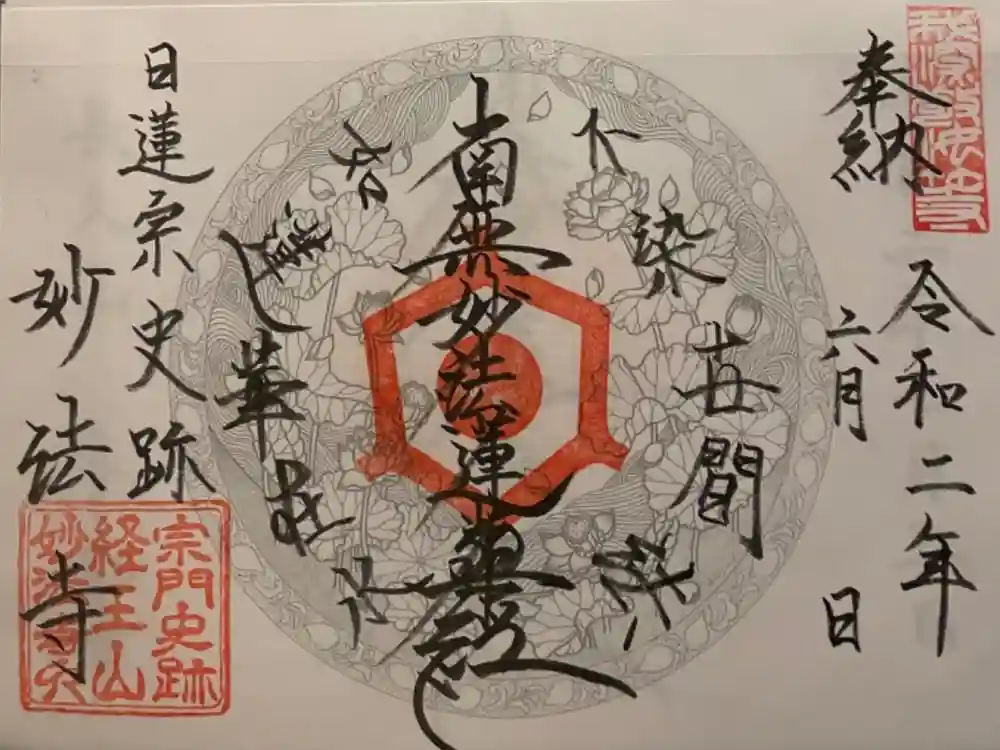 奉納
令和二年
六月 日
不染世間法
南無妙法蓮華経
如蓮華在水
日蓮宗史跡
妙法寺
宗門史跡
経王山
妙法